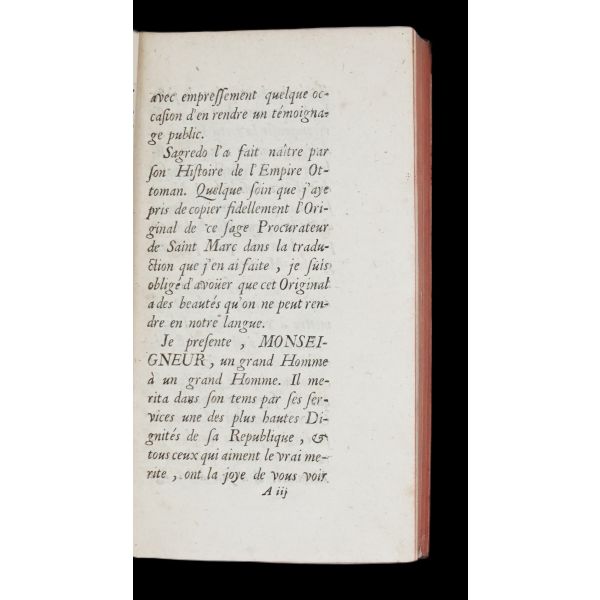 avec empreſſement quelque oc-
caſion d'en rendre un témoigna-
ge public.
Sagredo l'a fait naître par
ſon Hiſtoire de l'Empire Ot-
toman. Quelque ſoin que j'aye
pris de copier fidellement l'Ori-
ginal de ce ſage Procurateur
de Saint Marc dans la tradu-
ction que j'en ai faite, je ſuis
obligé d'avoüer que cet Original
a des beautés qu'on ne peut ren-
dre en notre langue.
Je preſente, MONSEI-
GNEUR, un grand Homme
à un grand Homme. Il me-
rita dans ſon tems par ſes ſer-
vices une des plus hautes Di-
gnités de ſa Republique, &
tous ceux qui aiment le vrai me-
rite, ont la joye de vous voir
A iij